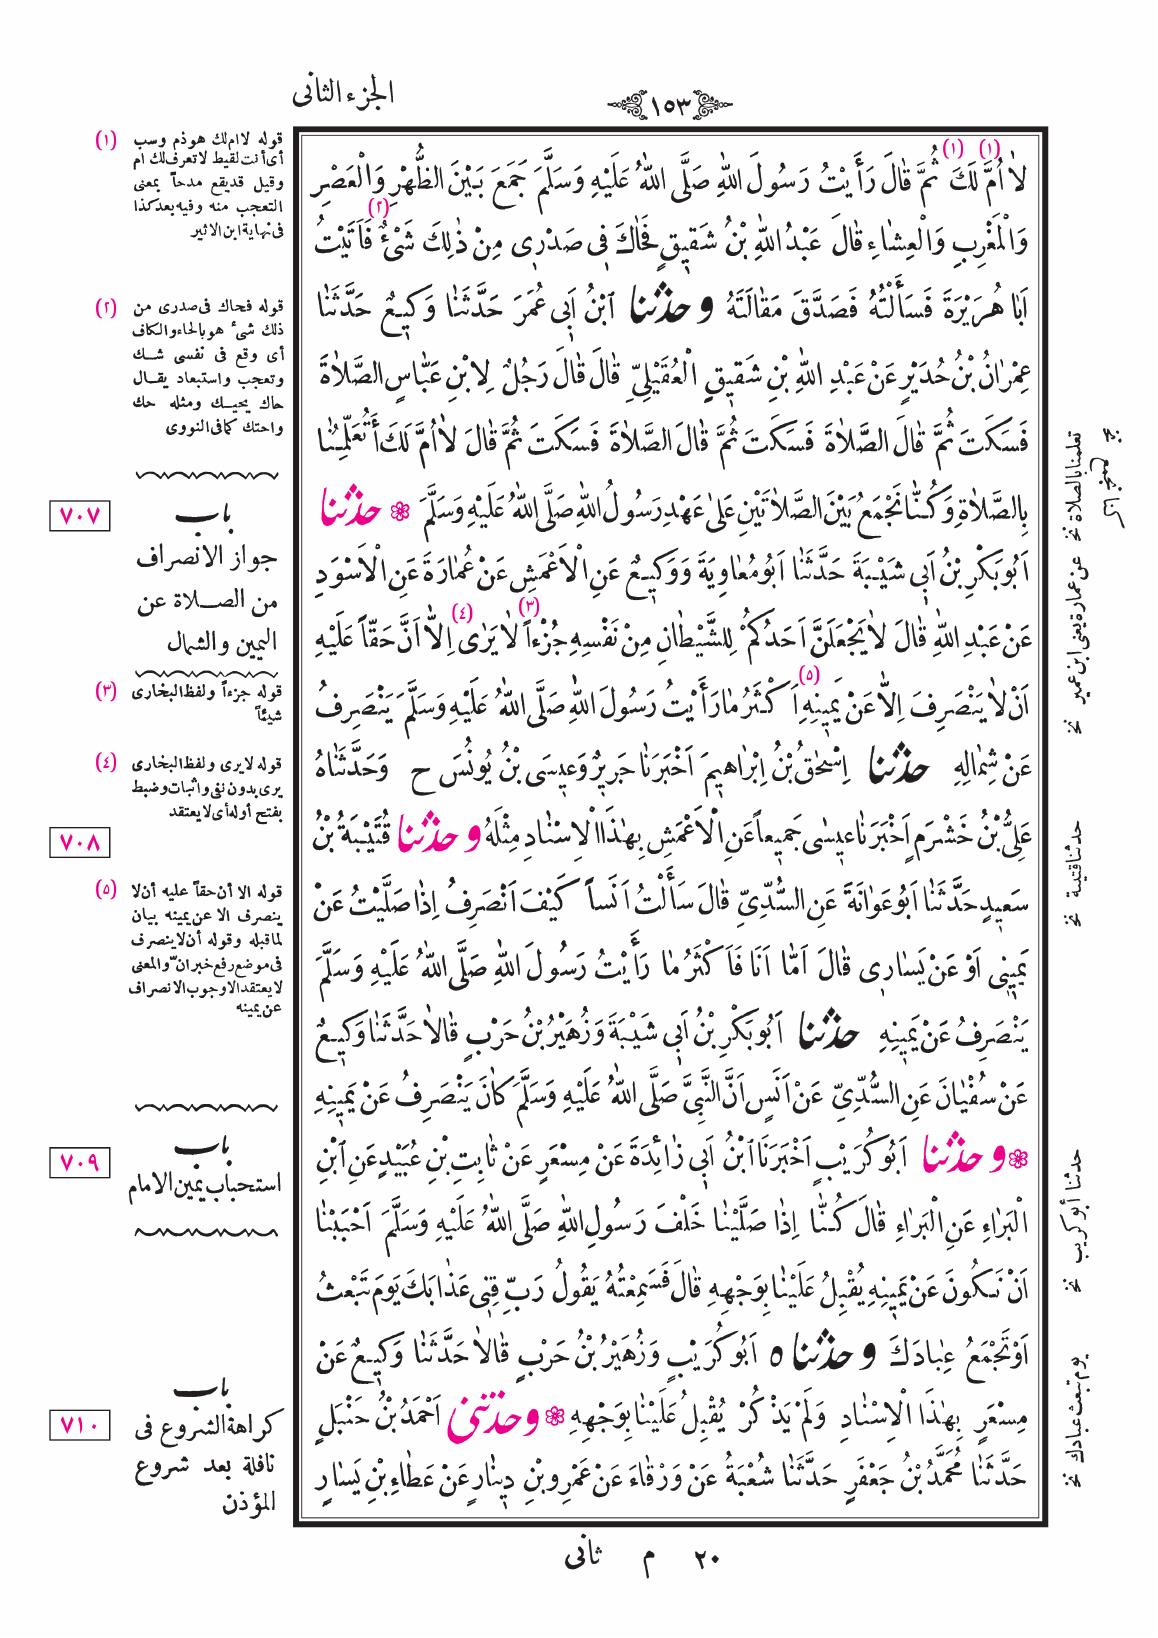 الجزء الثانى
١٥٣
(١) (١)
لَا أُمَّ لَكَ ثُمَّ قَالَ رَأَيْتُ رَسُولَ اللّٰهِ صَلَّى اللّٰهُ عَلَيْهِ وَسَلَّمَ جَمَعَ بَيْنَ الظُّهْرِ وَالْعَصْرِ
(٢)
وَالْمَغْرِبِ وَالْعِشَاءِ قَالَ عَبْدُ اللّٰهِ بْنُ شَقِيقٍ فَحَاكَ فِى صَدْرِى مِنْ ذٰلِكَ شَىْءٌ فَاَتَيْتُ
اَبَا هُرَيْرَةَ فَسَأَلْتُهُ فَصَدَّقَ مَقَالَتَهُ و حدثنا ابْنُ اَبِى عُمَرَ حَدَّثَنَا وَكِيعٌ حَدَّثَنَا
عِمْرَانُ بْنُ حُدَيْرٍ عَنْ عَبْدِ اللّٰهِ بْنِ شَقِيقٍ الْعُقَيْلِىِّ قَالَ قَالَ رَجُلٌ لِابْنِ عَبَّاسٍ الصَّلَاةَ
فَسَكَتَ ثُمَّ قَالَ الصَّلَاةَ فَسَكَتَ ثُمَّ قَالَ الصَّلَاةَ فَسَكَتَ ثُمَّ قَالَ لَا أُمَّ لَكَ أَتُعَلِّمُنَا
بِالصَّلَاةِ وَكُنَّا نَجْمَعُ بَيْنَ الصَّلَاتَيْنِ عَلَى عَهْدِ رَسُولِ اللّٰهِ صَلَّى اللّٰهُ عَلَيْهِ وَسَلَّمَ ۞ حدثنا
اَبُو بَكْرِ بْنُ اَبِى شَيْبَةَ حَدَّثَنَا اَبُو مُعَاوِيَةَ وَوَكِيعٌ عَنِ الْاَعْمَشِ عَنْ عُمَارَةَ عَنِ الْاَسْوَدِ
(٣) (٤)
عَنْ عَبْدِ اللّٰهِ قَالَ لَا يَجْعَلَنَّ اَحَدُكُمْ لِلشَّيْطَانِ مِنْ نَفْسِهِ جُزْءاً لَا يَرٰى اِلَّا اَنَّ حَقّاً عَلَيْهِ
(٥)
اَنْ لَا يَنْصَرِفَ اِلَّا عَنْ يَمِينِهِ اَكْثَرُ مَا رَأَيْتُ رَسُولَ اللّٰهِ صَلَّى اللّٰهُ عَلَيْهِ وَسَلَّمَ يَنْصَرِفُ
عَنْ شِمَالِهِ حدثنا اِسْحٰقُ بْنُ اِبْرَاهِيمَ اَخْبَرَنَا جَرِيرٌ وَعِيسَى بْنُ يُونُسَ ح وَحَدَّثَنَاهُ
عَلِىُّ بْنُ خَشْرَمٍ اَخْبَرَنَا عِيسٰى جَمِيعاً عَنِ الْاَعْمَشِ بِهٰذَا الْاِسْنَادِ مِثْلَهُ و حدثنا قُتَيْبَةُ بْنُ
سَعِيدٍ حَدَّثَنَا اَبُو عَوَانَةَ عَنِ السُّدِّىِّ قَالَ سَأَلْتُ اَنَساً كَيْفَ اَنْصَرِفُ اِذَا صَلَّيْتُ عَنْ
يَمِينِى اَوْ عَنْ يَسَارِى قَالَ اَمَّا اَنَا فَاَكْثَرُ مَا رَأَيْتُ رَسُولَ اللّٰهِ صَلَّى اللّٰهُ عَلَيْهِ وَسَلَّمَ
يَنْصَرِفُ عَنْ يَمِينِهِ حدثنا اَبُو بَكْرِ بْنُ اَبِى شَيْبَةَ وَزُهَيْرُ بْنُ حَرْبٍ قَالَا حَدَّثَنَا وَكِيعٌ
عَنْ سُفْيَانَ عَنِ السُّدِّىِّ عَنْ اَنَسٍ اَنَّ النَّبِىَّ صَلَّى اللّٰهُ عَلَيْهِ وَسَلَّمَ كَانَ يَنْصَرِفُ عَنْ يَمِينِهِ
۞ و حدثنا اَبُو كُرَيْبٍ اَخْبَرَنَا ابْنُ اَبِى زَائِدَةَ عَنْ مِسْعَرٍ عَنْ ثَابِتِ بْنِ عُبَيْدٍ عَنِ ابْنِ
الْبَرَاءِ عَنِ الْبَرَاءِ قَالَ كُنَّا اِذَا صَلَّيْنَا خَلْفَ رَسُولِ اللّٰهِ صَلَّى اللّٰهُ عَلَيْهِ وَسَلَّمَ اَحْبَبْنَا
اَنْ نَكُونَ عَنْ يَمِينِهِ يُقْبِلُ عَلَيْنَا بِوَجْهِهِ قَالَ فَسَمِعْتُهُ يَقُولُ رَبِّ قِنِى عَذَابَكَ يَوْمَ تَبْعَثُ
اَوْ تَجْمَعُ عِبَادَكَ و حدثنا ه اَبُو كُرَيْبٍ وَزُهَيْرُ بْنُ حَرْبٍ قَالَا حَدَّثَنَا وَكِيعٌ عَنْ
مِسْعَرٍ بِهٰذَا الْاِسْنَادِ وَلَمْ يَذْكُرْ يُقْبِلُ عَلَيْنَا بِوَجْهِهِ ۞ و حدثنى اَحْمَدُ بْنُ حَنْبَلٍ
حَدَّثَنَا مُحَمَّدُ بْنُ جَعْفَرٍ حَدَّثَنَا شُعْبَةُ عَنْ وَرْقَاءَ عَنْ عَمْرِو بْنِ دِينَارٍ عَنْ عَطَاءِ بْنِ يَسَارٍ
(١) قوله لا ام لك هو ذم وسب
أى أنت لقيط لا تعرف لك ام
وقيل قد يقع مدحاً بمعنى
التعجب منه وفيه بعد كذا
فى نهاية ابن الاثير
(٢) قوله فحاك فى صدرى من
ذلك شىء هو بالحاء والكاف
أى وقع فى نفسى شك
وتعجب واستبعاد يقال
حاك يحيك ومثله حك
واحتك كما فى النووى
٧٠٧
باب
جواز الانصراف
من الصلاة عن
اليمين والشمال
(٣) قوله جزءاً ولفظ البخارى
شيئاً
(٤) قوله لا يرى ولفظ البخارى
يرى بدون نفى واثبات وضبط
بفتح أوله أى لا يعتقد
٧٠٨
(٥) قوله الا أن حقاً عليه أن لا
ينصرف الا عن يمينه بيان
لما قبله وقوله أن لا ينصرف
فى موضع رفع خبر انّ والمعنى
لا يعتقد الا وجوب الانصراف
عن يمينه
٧٠٩
باب
استحباب يمين الامام
٧١٠
باب
كراهة الشروع فى
نافلة بعد شروع
المؤذن
تعلمنا بالصلاة نخ
عن عمارة يعنى ابن عمير نخ
حدثنا قتيبة نخ
حدثنا أبو كريب نخ
يوم تبعث عبادك نخ
٢٠ م ثانى